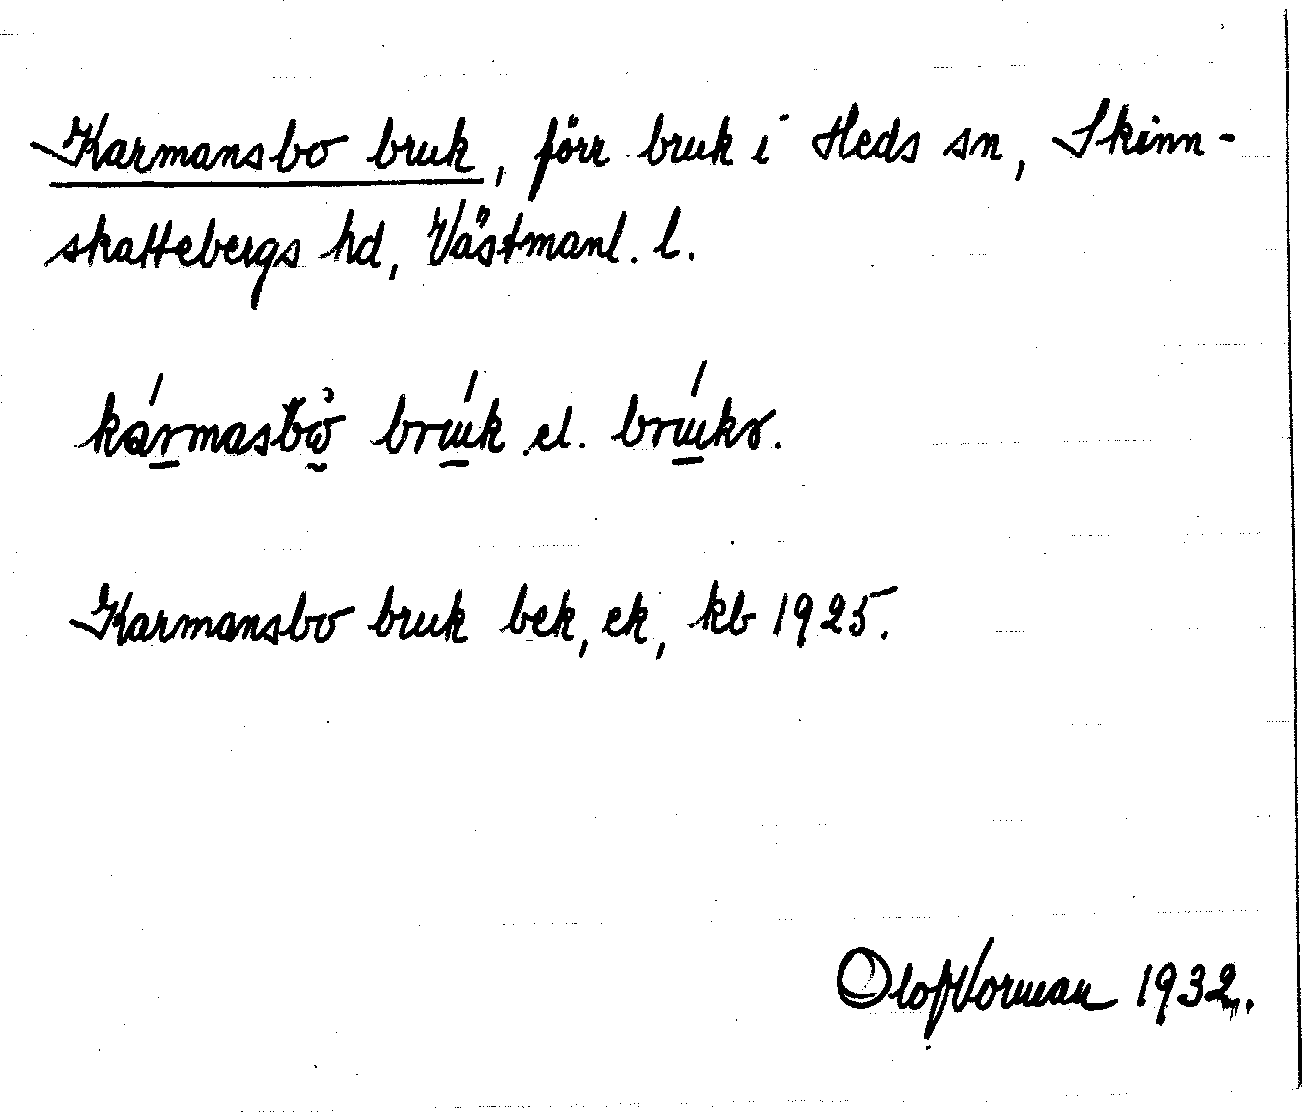 Karmansbo bruk, förr bruk i Heds sn, Skinn-
skattebergs hd, Västmanl. l.
kármasbò̰ brɯ́k el. brɯ́kɤ.
Karmansbo bruk bek, ek, kb 1925.
Olof Vorman 1932.